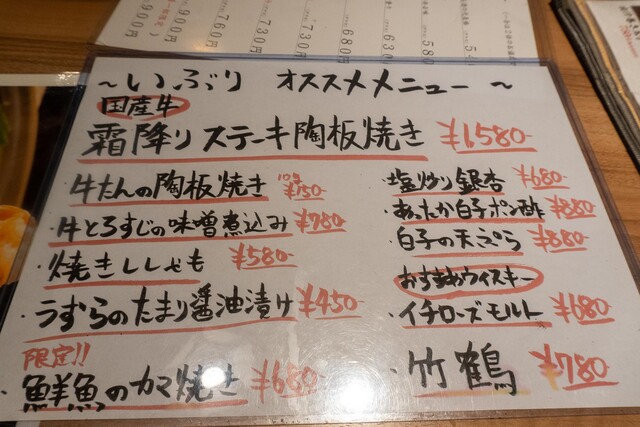 900円
900円
730円
730円
680円
630
580
54
～いぶり オススメメニュー～
国産牛
霜降りステーキ陶板焼き ¥1580-
・牛たんの陶板焼き
・牛とろすじの味噌煮込み ¥780-
・焼きししゃも ¥580-
・うずらのたまり醤油漬け ¥450-
限定!!
・鮮魚のカマ焼き ¥680-
・塩炒り銀杏 ¥680-
・あったか白子ポン酢 ¥880-
・白子の天ぷら ¥880-
おすすめウィスキー
・イチローズモルト ¥680-
・竹鶴 ¥780